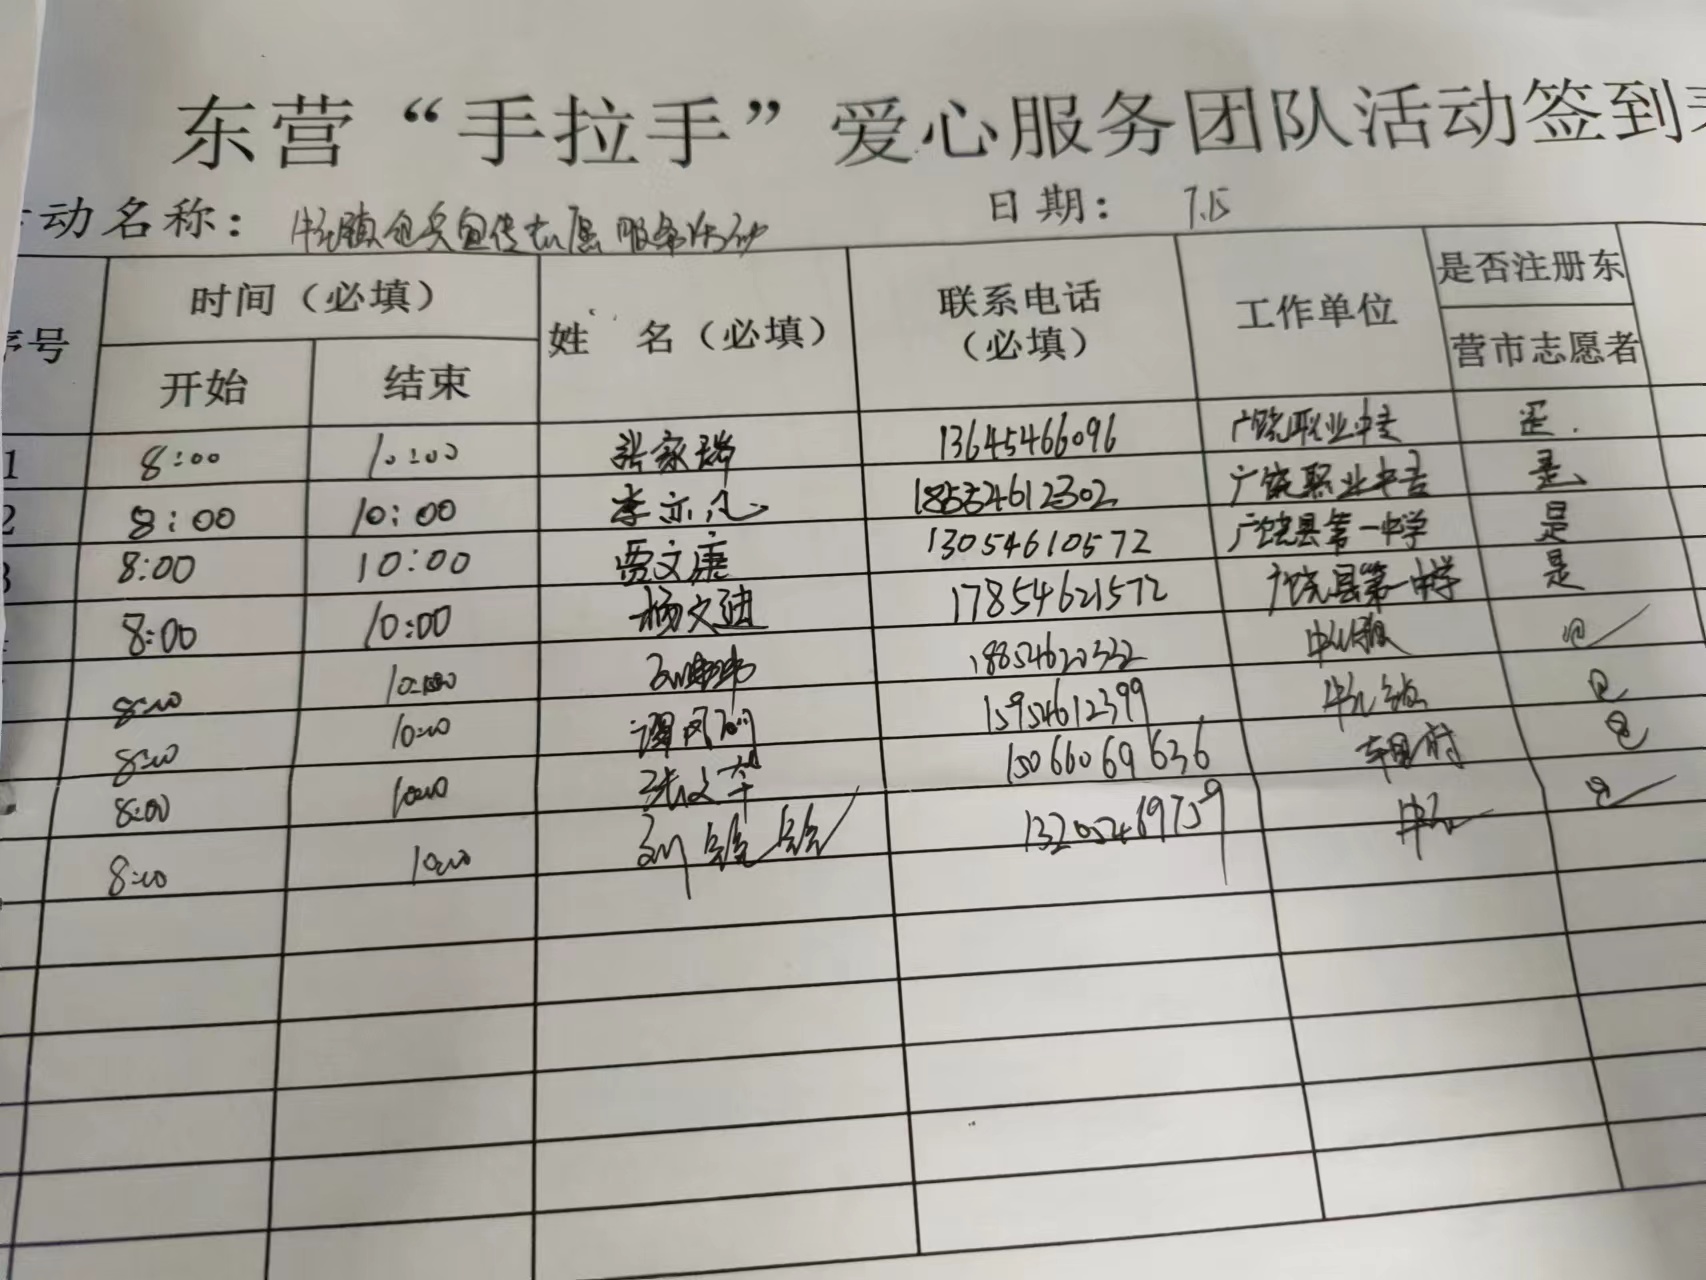 东营“手拉手”爱心服务团队活动签到
动名称： 日期： 7.15
序号 时间（必填） 姓 名（必填） 联系电话（必填） 工作单位 是否注册东营市志愿者
开始 结束
1 8:00 10:00 张家瑞 13645466096 广饶职业中专 是.
2 8:00 10:00 李亦凡 18554612302 广饶职业中专 是
3 8:00 10:00 贾文康 13054610572 广饶县第一中学 是
8:00 10:00 杨文迪 17854621572 广饶县第一中学 是
8:00 10:00 18854620332
8:00 10:00 15954612399
8:00 10:00 张文华 15066069636
8:00 10:00 13205469759